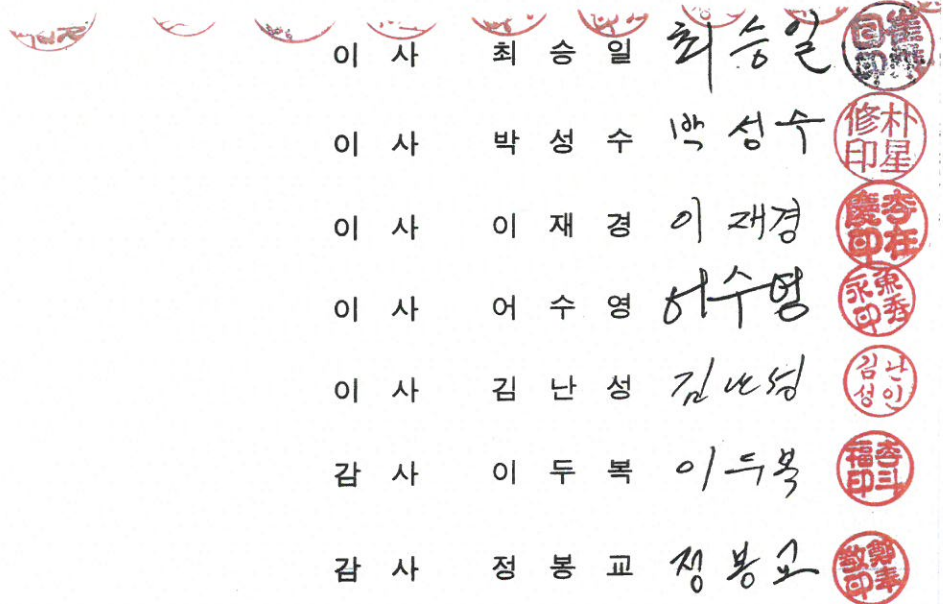 이 사 최 승 일 최승일 崔承日印
이 사 박 성 수 박성수 朴星修印
이 사 이 재 경 이재경 李在慶印
이 사 어 수 영 어수영 魚秀永印
이 사 김 난 성 김난성 김난성인
감 사 이 두 복 이두복 李斗福印
감 사 정 봉 교 정봉교 鄭奉敎印